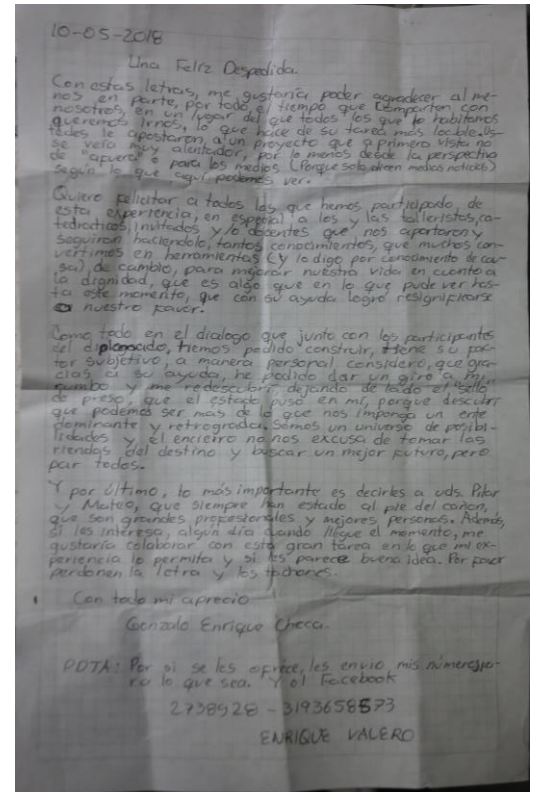 10-05-2018
Una Feliz Despedida.
Con estas letras, me gustaría poder agradecer al me-
nos en parte, por todo el tiempo que comparten con
nosotros, en un lugar del que todos los que lo habitamos
queremos irnos, lo que hace de su tarea más loable. Us-
tedes le apostaron, a un proyecto que a primera vista no
se vería muy alentador, por lo menos desde la perspectiva
de "afuera" o para los medios (Porque solo dicen medias noticias)
según lo que aquí podemos ver.
Quiero felicitar a todos los que hemos participado, de
esta experiencia, en especial a los y las talleristas, ca-
tedraticos, invitados y/o docentes que nos aportaron y
seguiran haciendolo, tantos conocimientos, que muchos con-
vertimos en herramientas (y lo digo por conocimiento de cau-
sa) de cambio, para mejorar nuestra vida en cuanto a
la dignidad, que es algo que en lo que pude ver has-
ta este momento, que con su ayuda logró resignificarse
a nuestro favor.
Como todo en el dialogo que junto con los participantes
del diplomado, hemos podido construir, tiene su fac-
tor subjetivo, a manera personal considero, que gra-
cias a su ayuda, he podido dar un giro a mi
rumbo y me redescubrí, dejando de lado el sello
de preso, que el estado puso en mí, porque descubri
que podemos ser mas de lo que nos imponga un ente
dominante y retrogrado. Somos un universo de posibi-
lidades y el encierro no nos excusa de tomar las
riendas del destino y buscar un mejor futuro, pero
par todos.
Y por último, lo más importante es decirles a uds. Pilar
y Mateo, que siempre han estado al pie del cañon,
que son grandes profesionales y mejores personas. Además,
si les interesa, algún día cuando llegue el momento, me
gustaría colaborar con esta gran tarea en lo que mi ex-
periencia lo permita y si les parece buena idea. Por favor
perdonen la letra y los tachones.
Con todo mi aprecio
Gonzalo Enrique Checa.
PDTA: Por si se les ofrece, les envio mis números pa-
ra lo que sea. Y el Facebook
2738928 - 3193658573
ENRIQUE VALERO